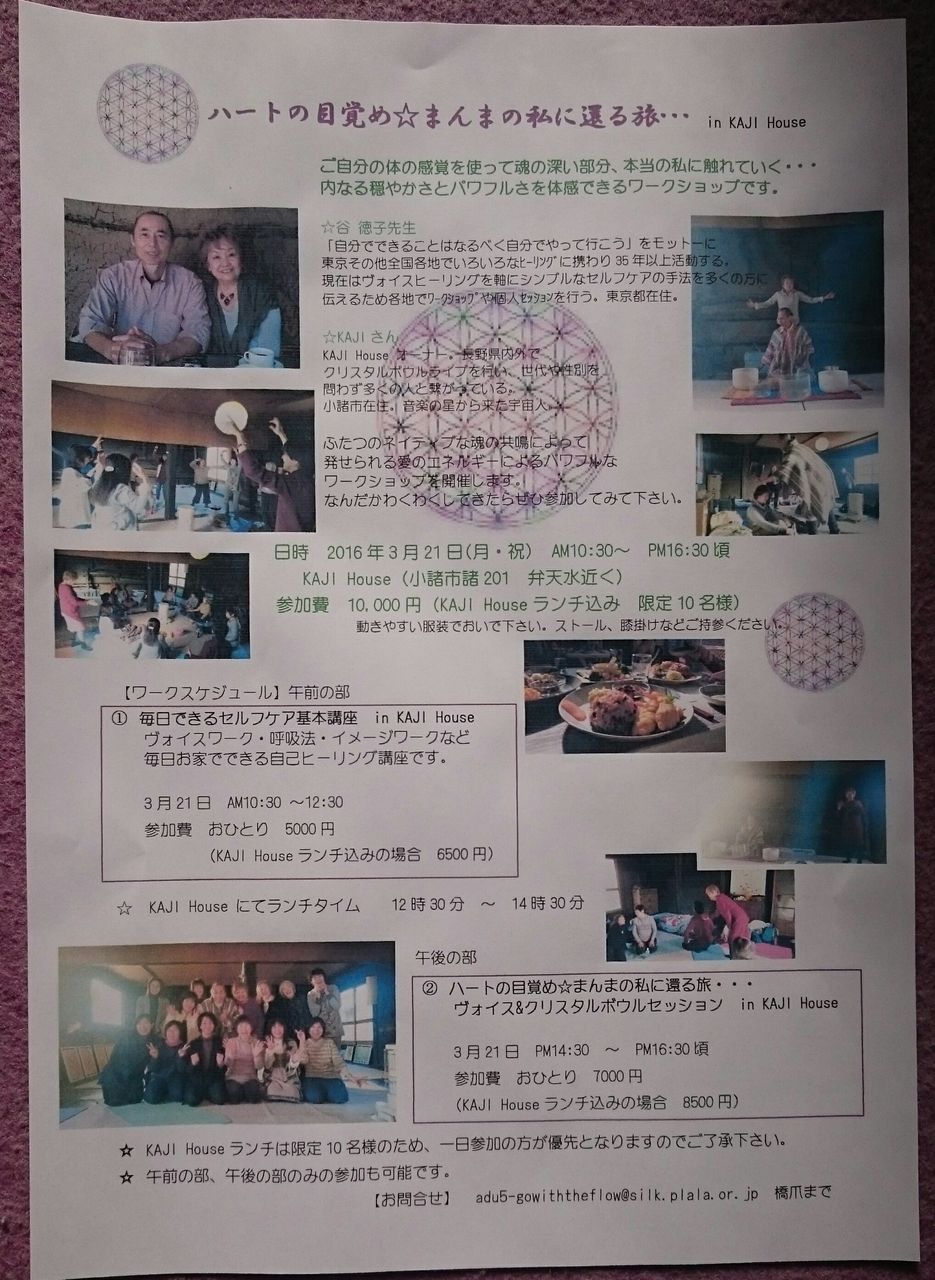 ハートの目覚め☆まんまの私に還る旅・・・ in KAJI House
ご自分の体の感覚を使って魂の深い部分、本当の私に触れていく・・・
内なる穏やかさとパワフルさを体感できるワークショップです。
☆谷 徳子先生
「自分でできることはなるべく自分でやって行こう」をモットーに
東京その他全国各地でいろいろなﾋｰﾘﾝｸﾞに携わり35年以上活動する。
現在はヴォイスヒーリングを軸にシンプルなセルフケアの手法を多くの方に
伝えるため各地でﾜｰｸｼｮｯﾌﾟや個人ｾｯｼｮﾝを行う。東京都在住。
☆KAJIさん
KAJI House オーナー。長野県内外で
クリスタルボウルライブを行い、世代や性別を
問わず多くの人と繋がっている。
小諸市在住。音楽の星から来た宇宙人。
ふたつのネイティブな魂の共鳴によって
発せられる愛のエネルギーによるパワフルな
ワークショップを開催します。
なんだかわくわくしてきたらぜひ参加してみて下さい。
日時 2016年3月21日(月・祝) AM10:30～ PM16:30頃
KAJI House（小諸市諸201 弁天水近く）
参加費 10,000円（KAJI Houseランチ込み 限定10名様）
動きやすい服装でおいで下さい。ストール、膝掛けなどご持参ください。
【ワークスケジュール】午前の部
① 毎日できるセルフケア基本講座 in KAJI House
ヴォイスワーク・呼吸法・イメージワークなど
毎日お家でできる自己ヒーリング講座です。
3月21日 AM10:30 ～12:30
参加費 おひとり 5000円
（KAJI Houseランチ込みの場合 6500円）
☆ KAJI House にてランチタイム 12時30分 ～ 14時30分
午後の部
② ハートの目覚め☆まんまの私に還る旅・・・
ヴォイス&クリスタルボウルセッション in KAJI House
3月21日 PM14:30 ～ PM16:30頃
参加費 おひとり 7000円
（KAJI Houseランチ込みの場合 8500円）
☆ KAJI Houseランチは限定10名様のため、一日参加の方が優先となりますのでご了承下さい。
☆ 午前の部、午後の部のみの参加も可能です。
【お問合せ】 adu5-gowiththeflow@silk.plala.or.jp 橋爪まで